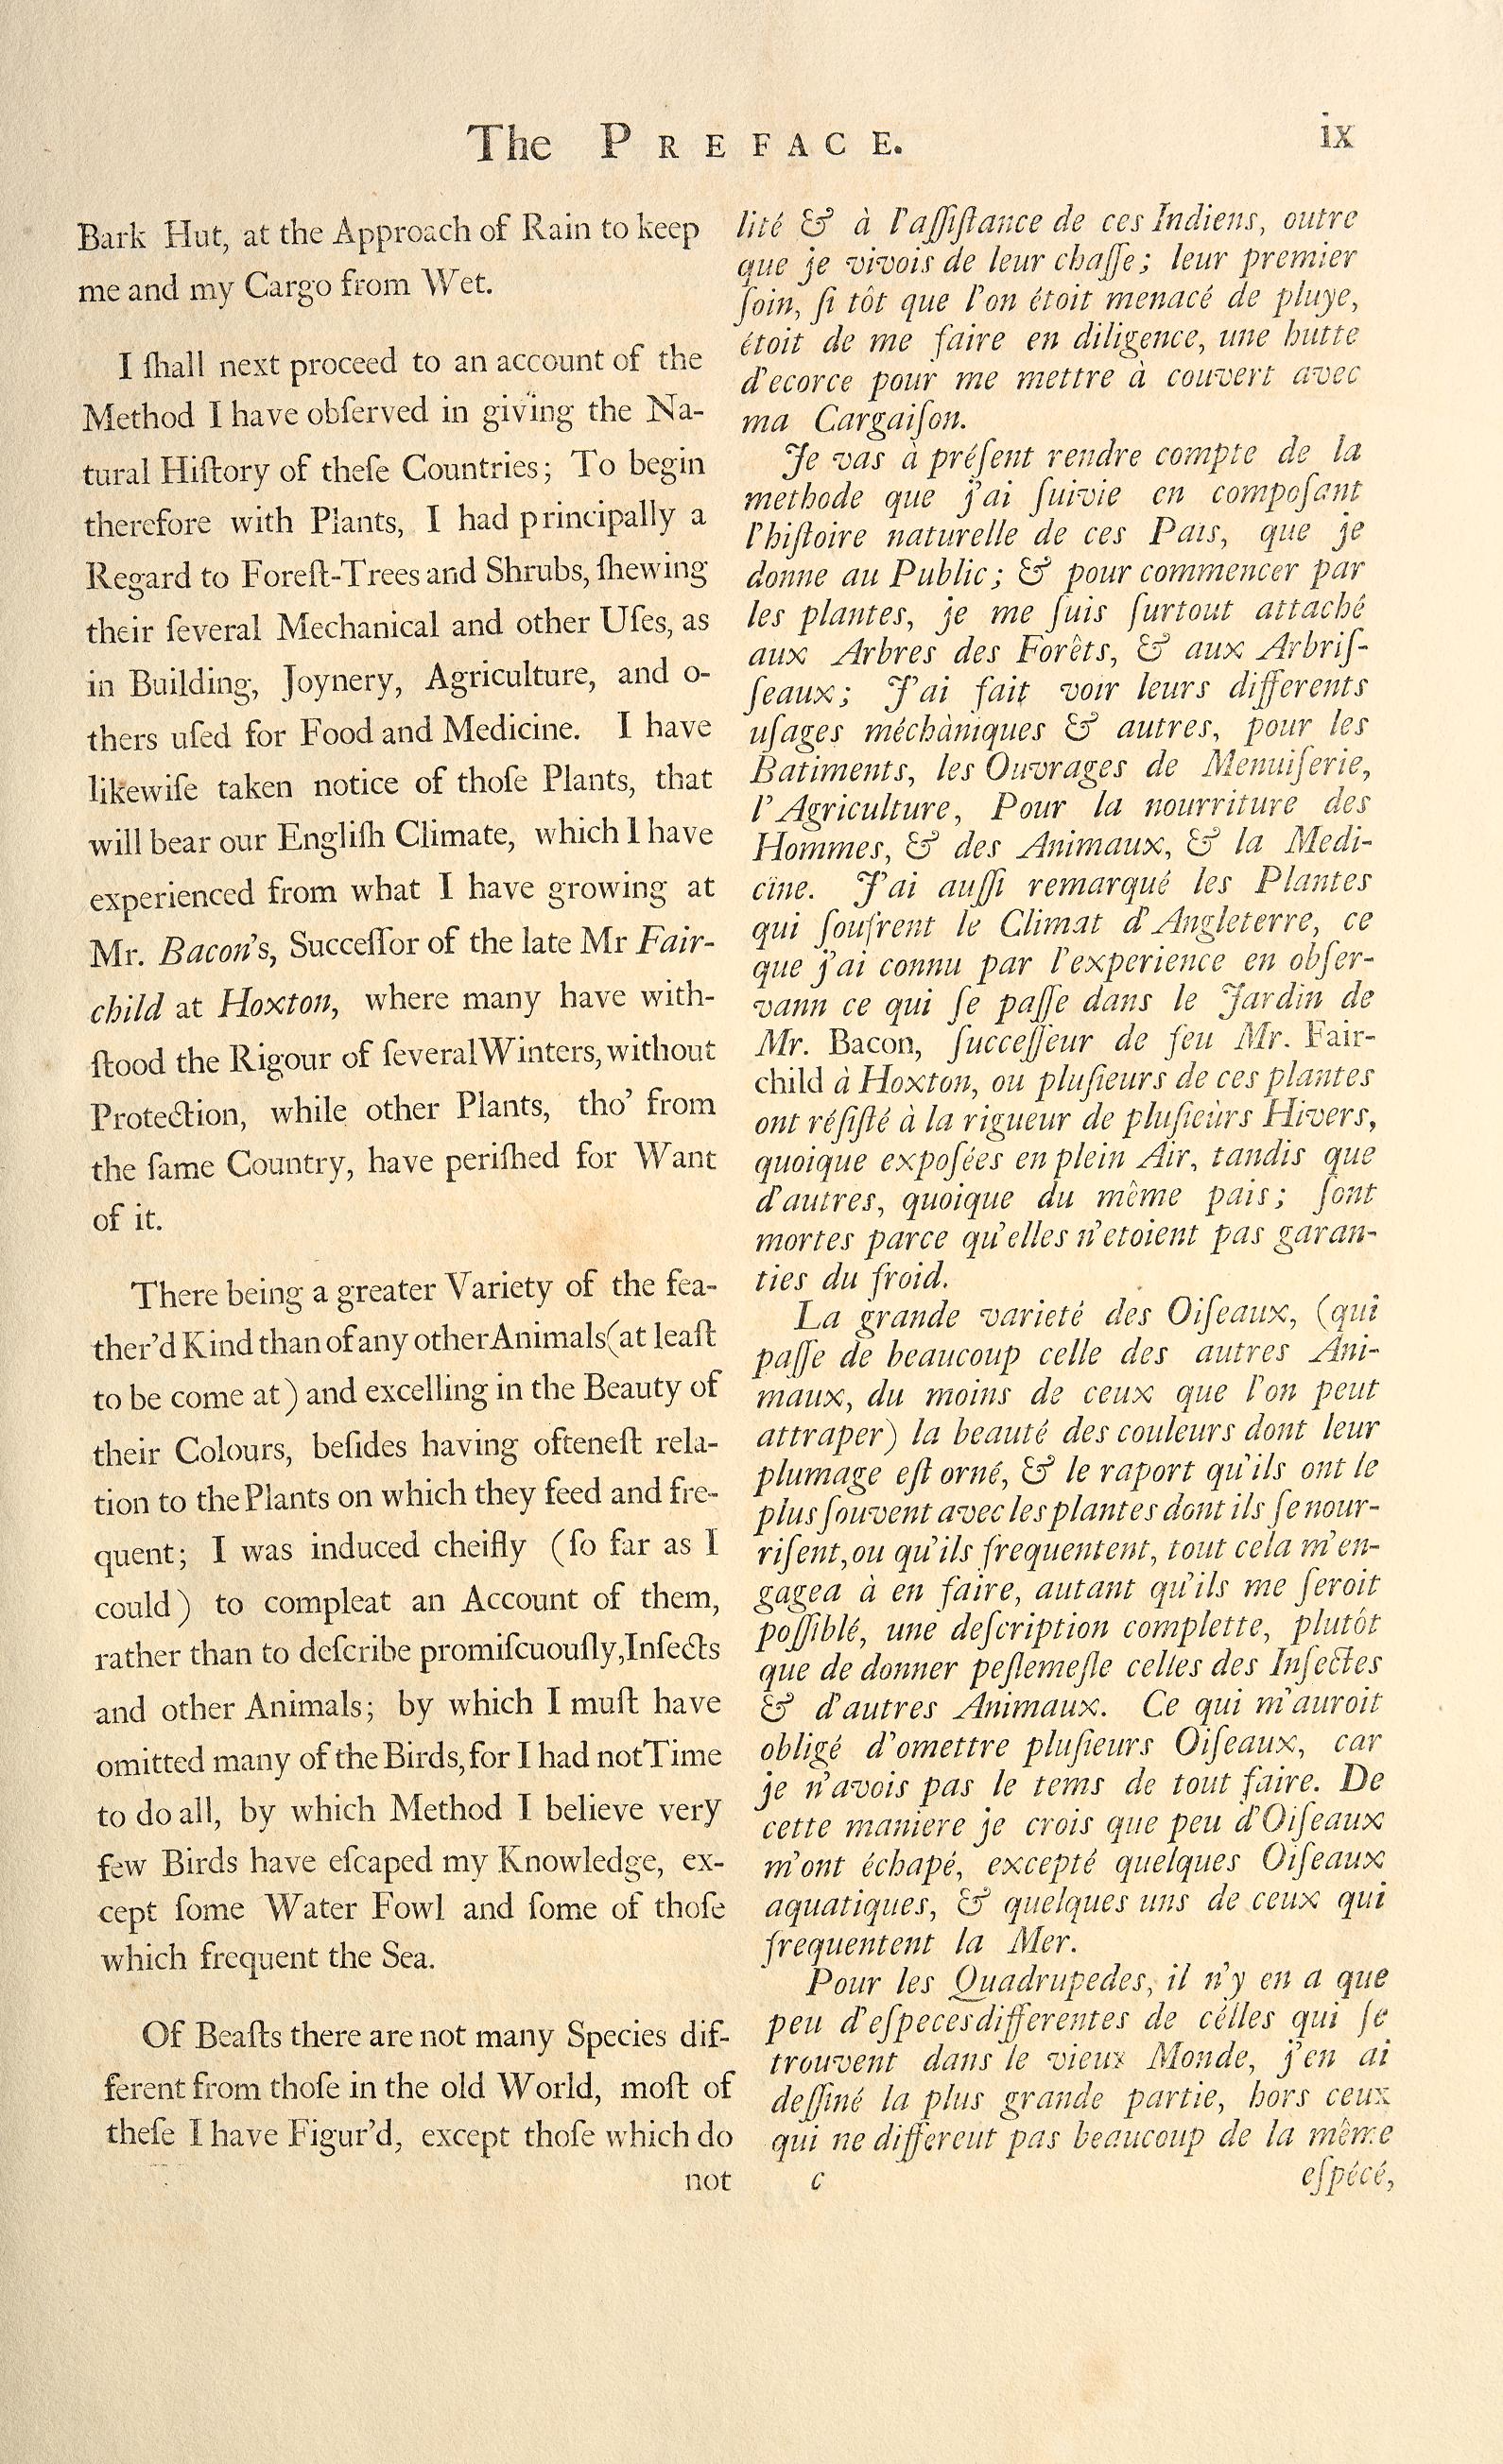 The PREFACE.
ix
Bark Hut, at the Approach of Rain to keep
me and my Cargo from Wet.
I ſhall next proceed to an account of the
Method I have obſerved in giving the Na-
tural Hiſtory of theſe Countries; To begin
therefore with Plants, I had principally a
Regard to Foreſt-Trees and Shrubs, ſhewing
their ſeveral Mechanical and other Uſes, as
in Building, Joynery, Agriculture, and o-
thers uſed for Food and Medicine. I have
likewiſe taken notice of thoſe Plants, that
will bear our Engliſh Climate, which I have
experienced from what I have growing at
Mr. Bacon's, Succeſſor of the late Mr Fair-
child at Hoxton, where many have with-
ſtood the Rigour of ſeveral Winters, without
Protection, while other Plants, tho' from
the ſame Country, have periſhed for Want
of it.
There being a greater Variety of the fea-
ther'd Kind than of any other Animals (at leaſt
to be come at) and excelling in the Beauty of
their Colours, beſides having ofteneſt rela-
tion to the Plants on which they feed and fre-
quent; I was induced cheifly (ſo far as I
could) to compleat an Account of them,
rather than to deſcribe promiſcuouſly, Inſects
and other Animals; by which I muſt have
omitted many of the Birds, for I had not Time
to do all, by which Method I believe very
few Birds have eſcaped my Knowledge, ex-
cept ſome Water Fowl and ſome of thoſe
which frequent the Sea.
Of Beaſts there are not many Species dif-
ferent from thoſe in the old World, moſt of
theſe I have Figur'd, except thoſe which do
not
lité & à l'aſſiſtance de ces Indiens, outre
que je vivois de leur chaſſe; leur premier
ſoin, ſi tôt que l'on étoit menacé de pluye,
étoit de me faire en diligence, une hutte
d'ecorce pour me mettre à couvert avec
ma Cargaiſon.
Je vas à préſent rendre compte de la
methode que j'ai ſuivie en compoſant
l'hiſtoire naturelle de ces Pais, que je
donne au Public; & pour commencer par
les plantes, je me ſuis ſurtout attaché
aux Arbres des Forêts, & aux Arbriſ-
ſeaux; J'ai fait voir leurs differents
uſages méchàniques & autres, pour les
Batiments, les Ouvrages de Menuiſerie,
l'Agriculture, Pour la nourriture des
Hommes, & des Animaux, & la Medi-
cine. J'ai auſſi remarqué les Plantes
qui ſoufrent le Climat d'Angleterre, ce
que j'ai connu par l'experience en obſer-
vann ce qui ſe paſſe dans le Jardin de
Mr. Bacon, ſucceſſeur de feu Mr. Fair-
child à Hoxton, ou pluſieurs de ces plantes
ont réſiſté à la rigueur de pluſieùrs Hivers,
quoique expoſées en plein Air, tandis que
d'autres, quoique du même pais; ſont
mortes parce qu'elles n'etoient pas garan-
ties du froid.
La grande varieté des Oiſeaux, (qui
paſſe de beaucoup celle des autres Ani-
maux, du moins de ceux que l'on peut
attraper) la beauté des couleurs dont leur
plumage eſt orné, & le raport qu'ils ont le
plus ſouvent avec les plantes dont ils ſe nour-
riſent, ou qu'ils frequentent, tout cela m'en-
gagea à en faire, autant qu'ils me ſeroit
poſſiblé, une deſcription complette, plutôt
que de donner peſlemeſle celles des Inſectes
& d'autres Animaux. Ce qui m'auroit
obligé d'omettre pluſieurs Oiſeaux, car
je n'avois pas le tems de tout faire. De
cette maniere je crois que peu d'Oiſeaux
m'ont échapé, excepté quelques Oiſeaux
aquatiques, & quelques uns de ceux qui
frequentent la Mer.
Pour les Quadrupedes, il n'y en a que
peu d'eſpeces differentes de célles qui ſe
trouvent dans le vieux Monde, j'en ai
deſſiné la plus grande partie, hors ceux
qui ne differeut pas beaucoup de la même
c
eſpécé,